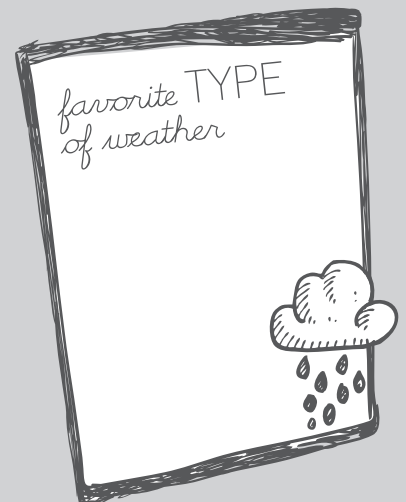 favorite TYPE
of weather